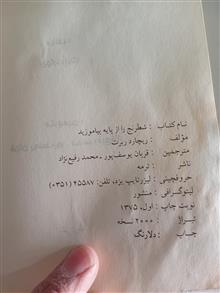 نام کتاب : شطرنج را از پایه بیاموزید
مؤلف : ریچارد ربرت
مترجمین : قربان یوسف‌پور - محمد رفیع‌نژاد
ناشر : ترمه
حروفچینی : لیزرتایپ یزد، تلفن: ۲۵۵۸۷ (۰۳۵۱)
لیتوگرافی : منشور
نوبت چاپ : اول، ۱۳۷۵
تیراژ : ۲۰۰۰ نسخه
چاپ : دلارنگ